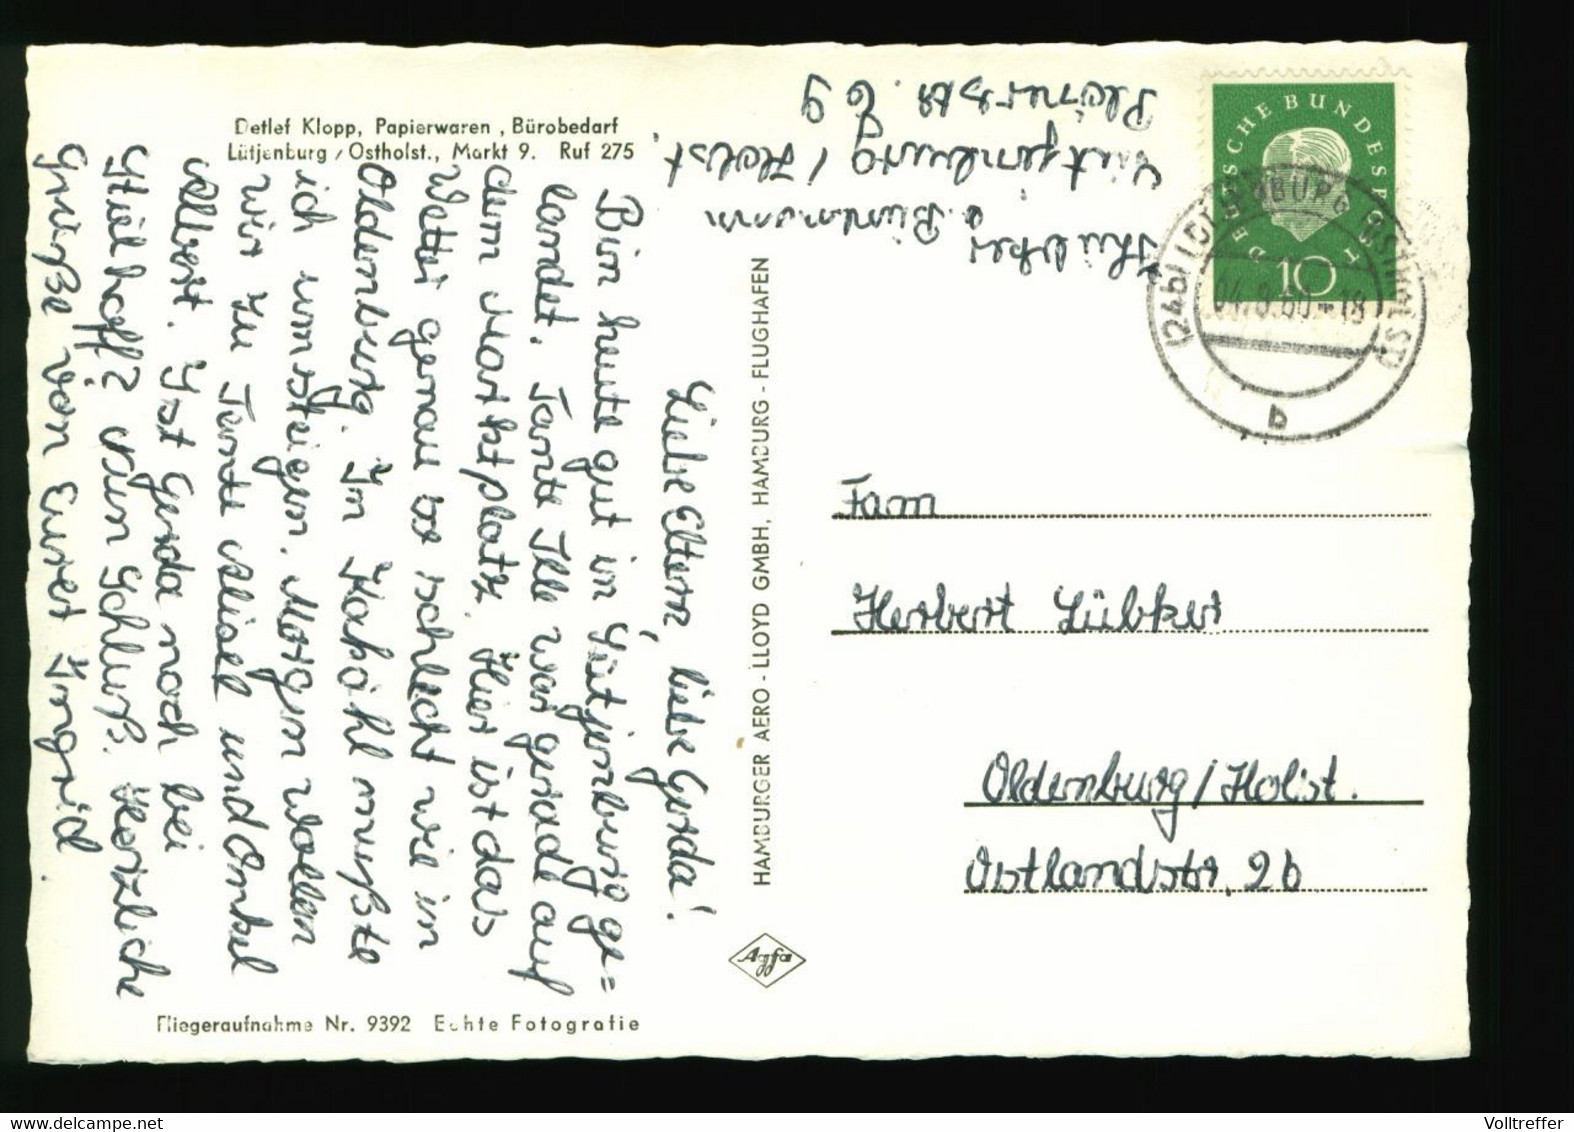 Detlef Klopp, Papierwaren, Bürobedarf
Lütjenburg / Ostholst., Markt 9. Ruf 275
Liebe Eltern, liebe Gerda!
Bin heute gut in Lütjenburg ge=
landet. Tante Ille war gerade auf
dem Marktplatz. Hier ist das
Wetter genau so schlecht wie in
Oldenburg. In Kaköhl mußte
ich umsteigen. Morgen wollen
wir zu Tante Liesel und Onkel
Albert. Ist Gerda noch bei
Stielhoff? Nun Schluß. Herzliche
Grüße von Eurer Ingrid.
Fliegeraufnahme Nr. 9392 Echte Fotografie
HAMBURGER AERO - LLOYD GMBH, HAMBURG - FLUGHAFEN
Agfa
Lübker
Lütjenburg / Holst.
Plönerstr. 69
DEUTSCHE BUNDESPOST
10
(24b)
b
Fam
Herbert Lübker
Oldenburg / Holst.
Ostlandstr. 26
Volltreffer